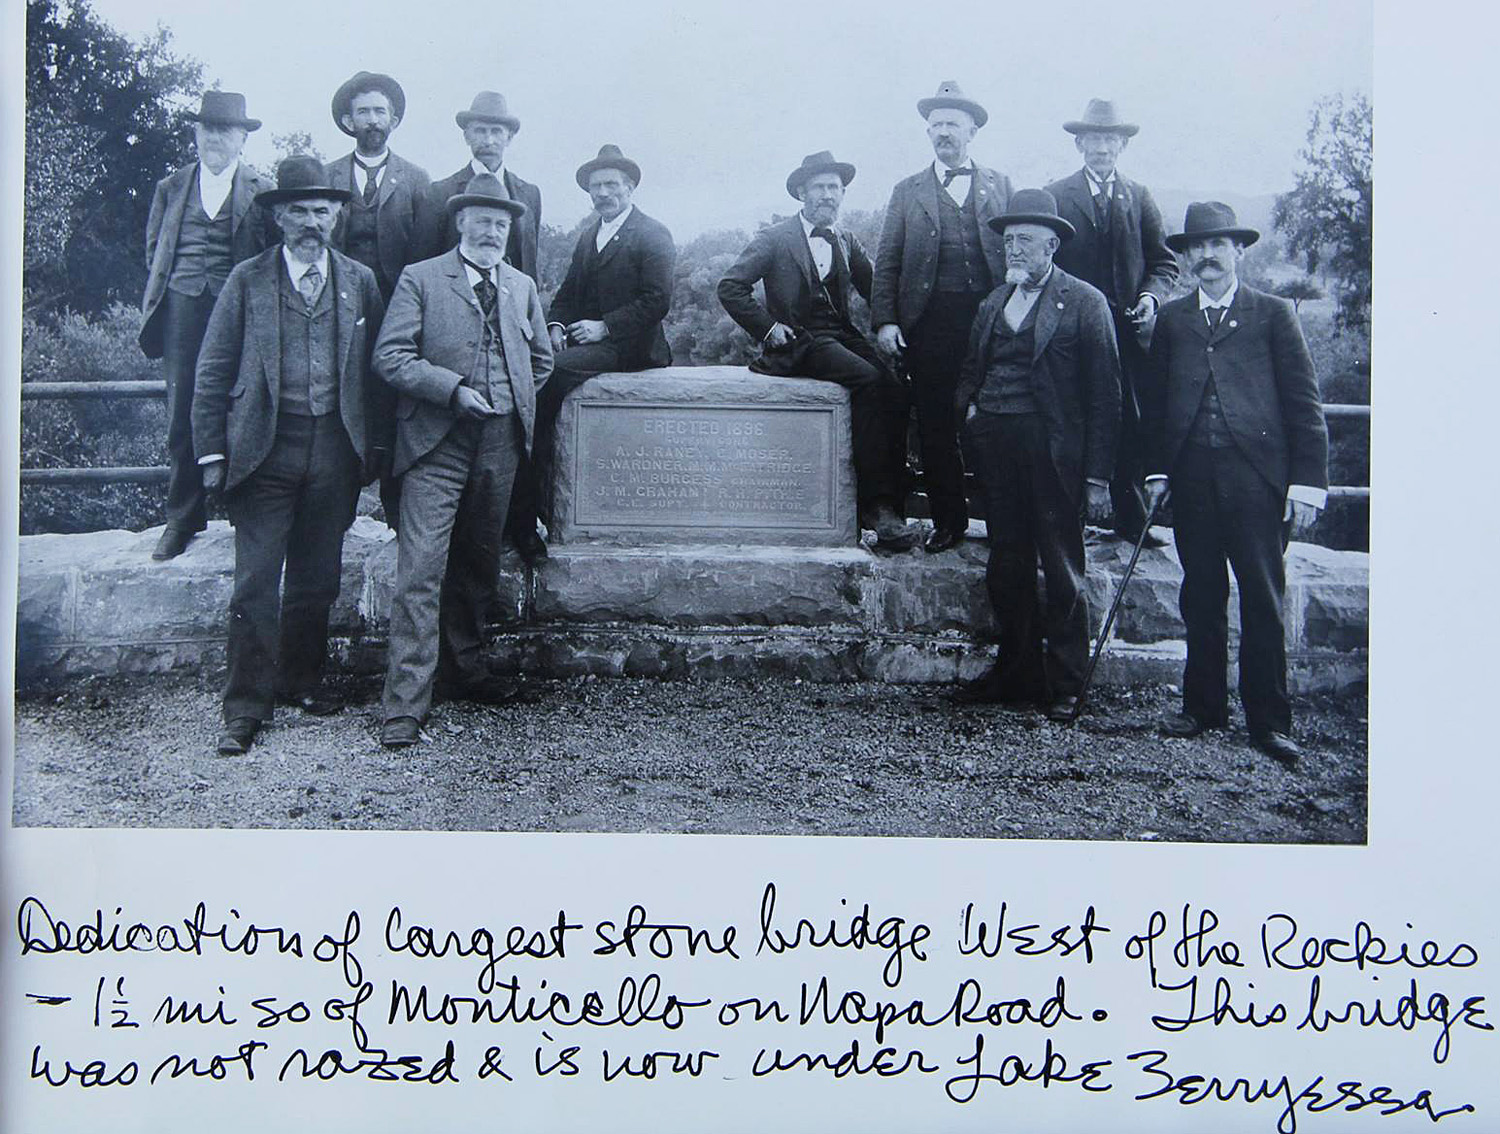 ERECTED 1896
SUPERVISORS
A. J. RANEY, E. MOSER.
S. WARDNER, M. M. McFATRIDGE.
C. M. BURGESS CHAIRMAN.
J. M. GRAHAM
CONTRACTOR.
Dedication of largest stone bridge West of the Rockies
- 1½ mi so of Monticello on Napa Road. This bridge
was not razed & is now under Lake Berryessa.